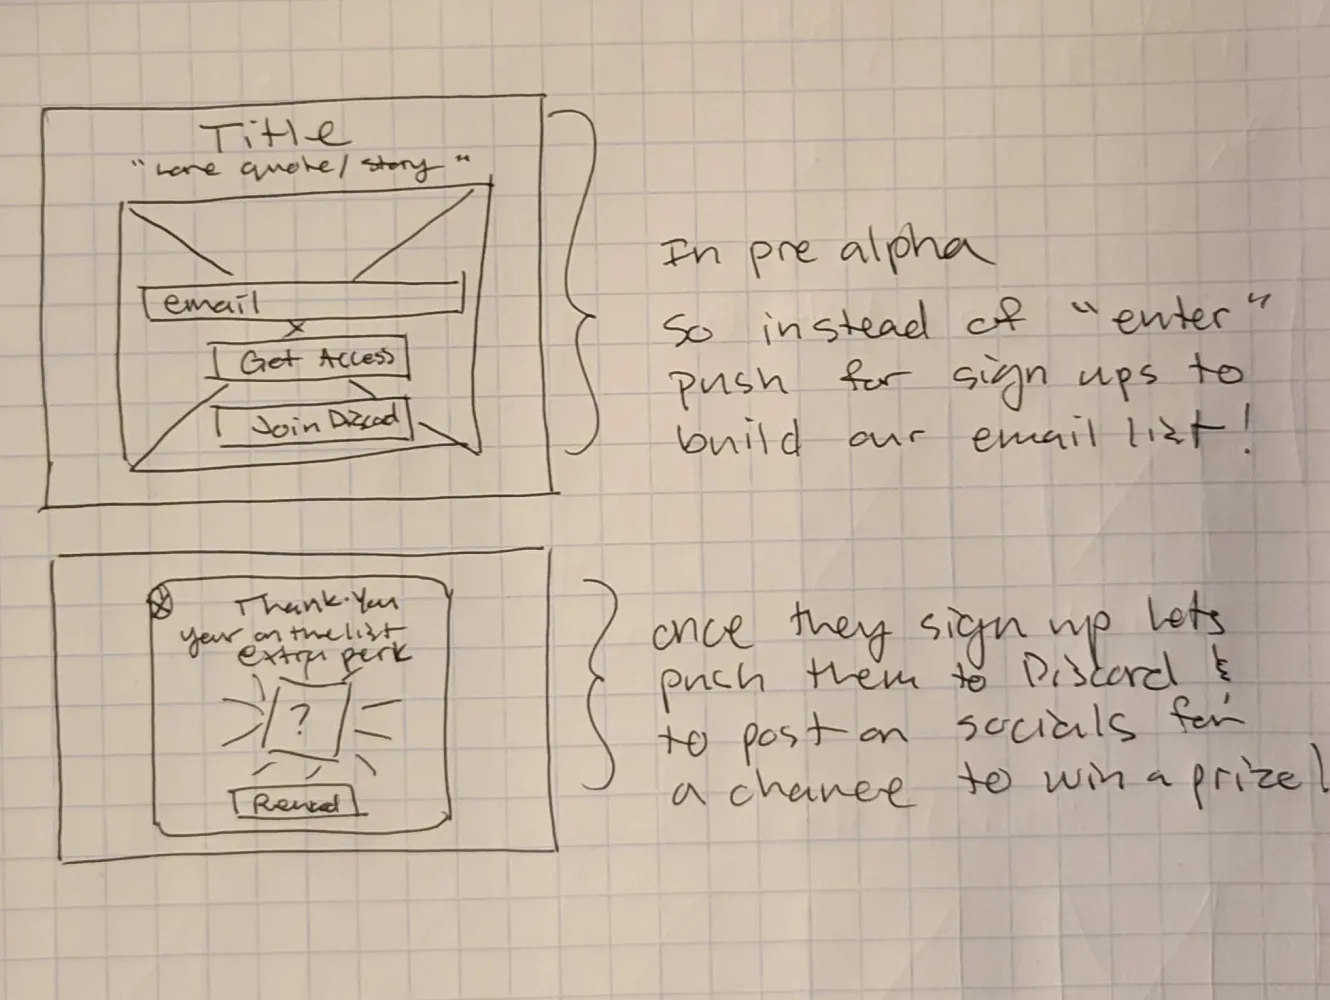 Title
"Lore quote/ story"
email
Get Access
Join Discod
In pre alpha
so instead of "enter"
push for sign ups to
build our email list!
Thank-You
your on the list
extra perk
?
once they sign up lets
push them to Discord &
to post on socials for
a chance to win a prize!